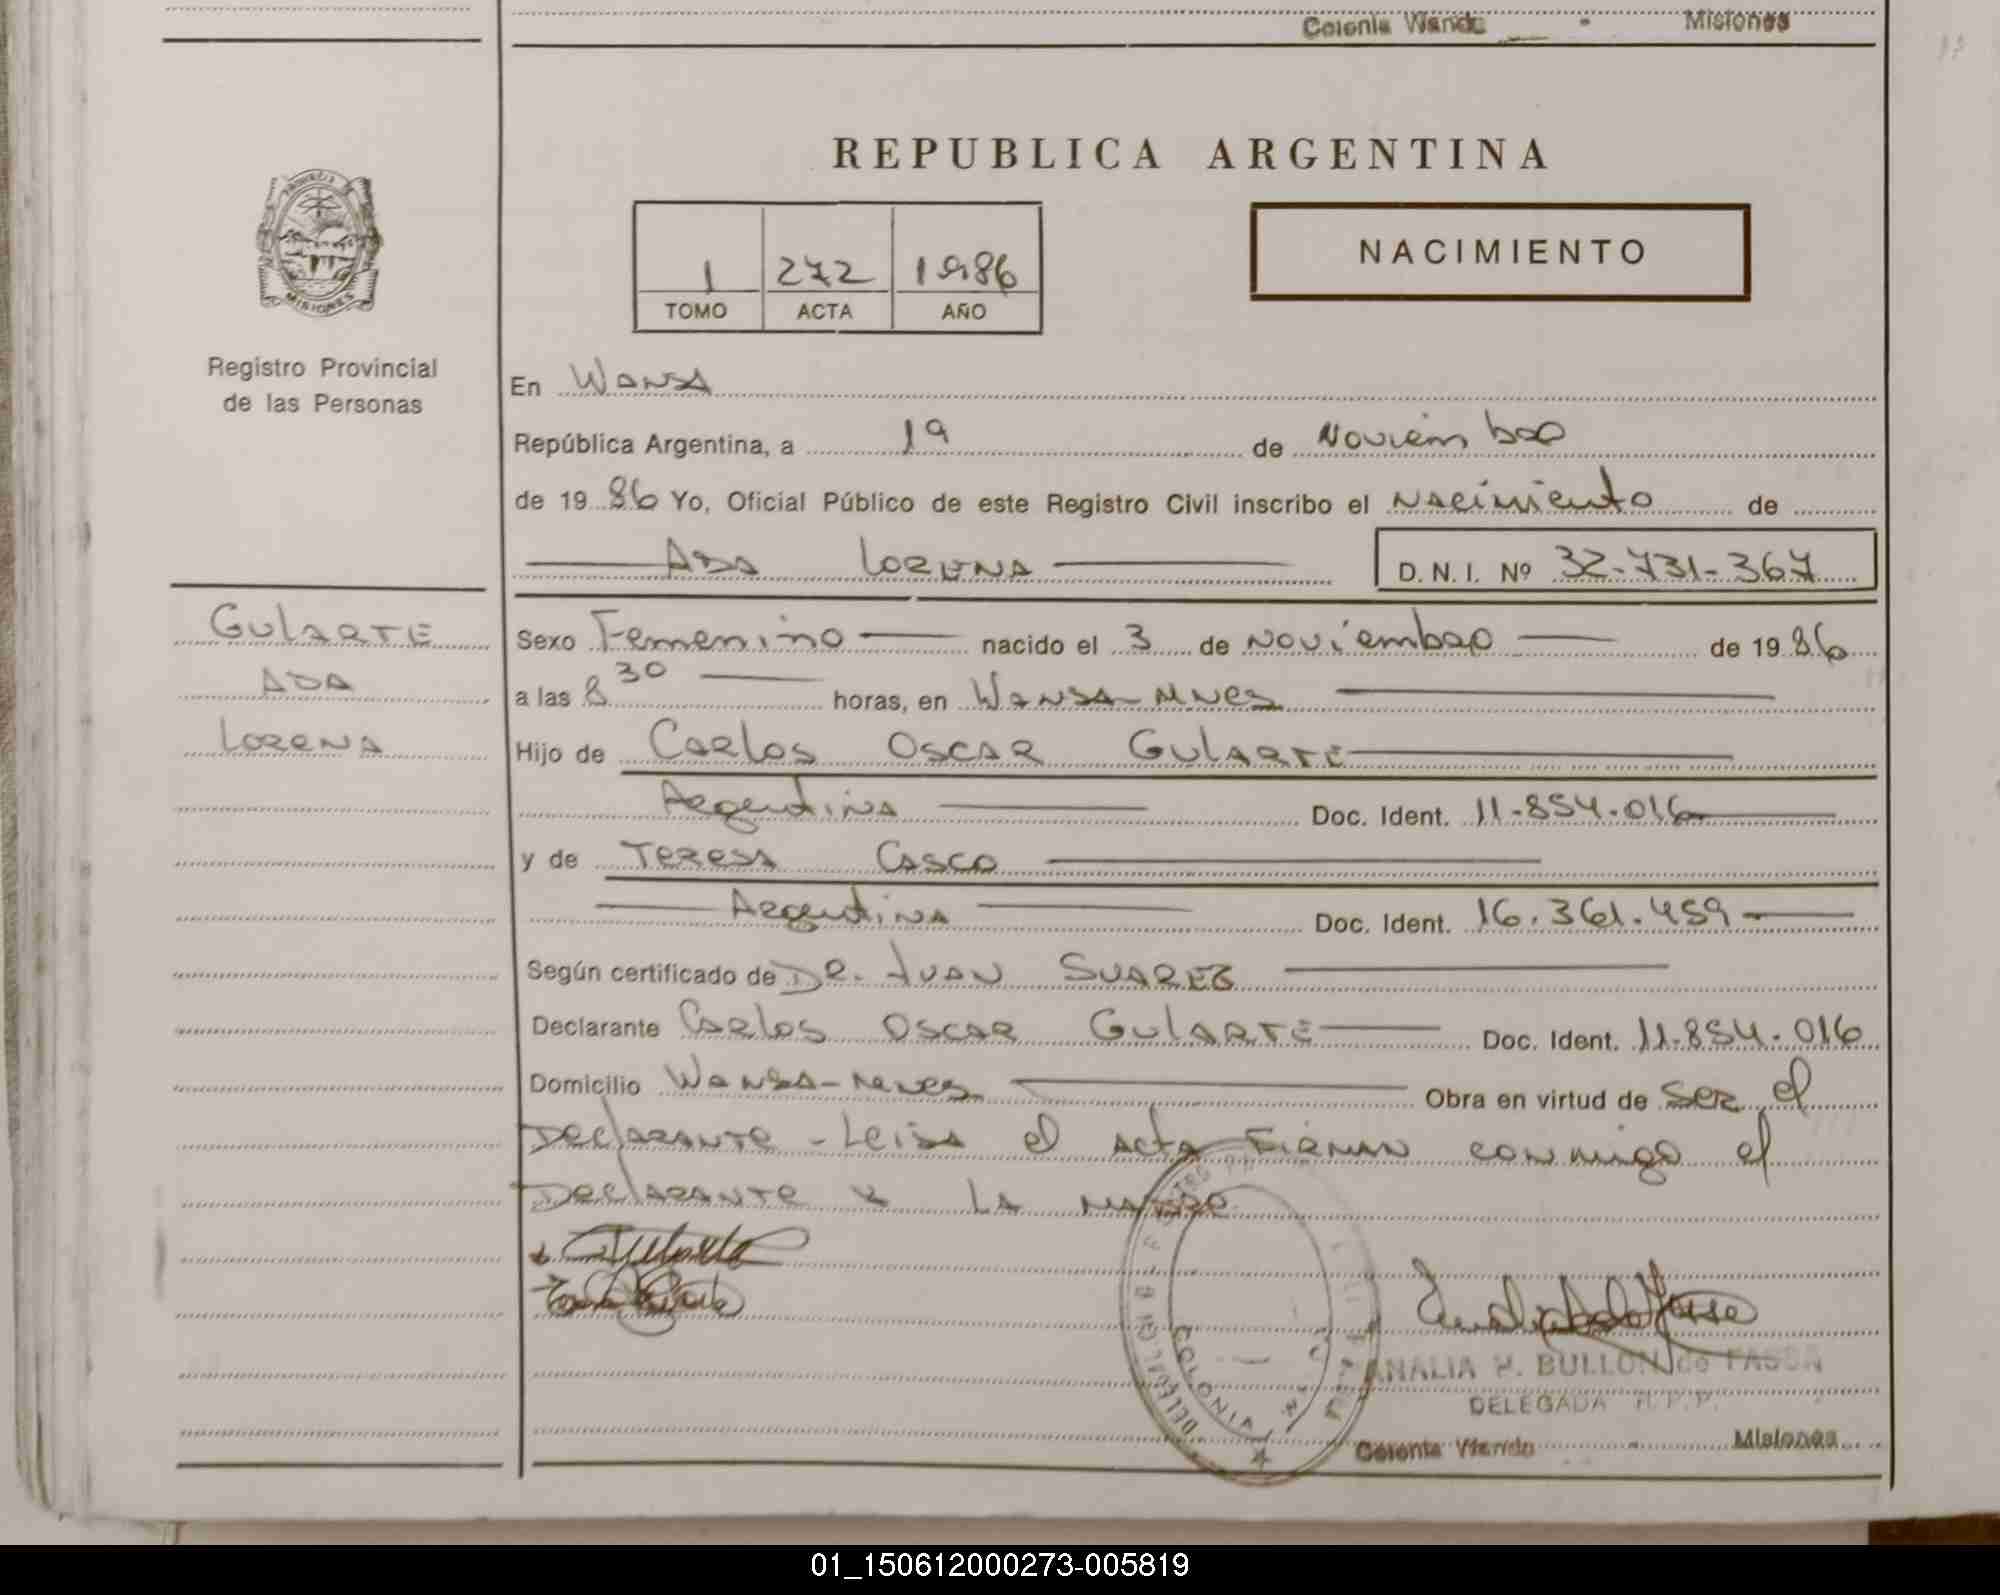 Colonia Wanda - Misiones
REPUBLICA ARGENTINA
PROVINCIA DE
MISIONES
1 272 1986
TOMO ACTA AÑO
NACIMIENTO
Registro Provincial
de las Personas
En Wanda
República Argentina, a 19 de Noviembre
de 1986 Yo, Oficial Público de este Registro Civil inscribo el Nacimiento de
Ada Lorena D. N. I. Nº 32-731-367
GULARTE
ADA
LORENA
Sexo Femenino nacido el 3 de Noviembre de 1986
a las 8 30 horas, en Wanda-Mnes
Hijo de Carlos Oscar Gularte
Argentina Doc. Ident. 11-854-016
y de Teresa Casco
Argentina Doc. Ident. 16.361.459
Según certificado de Dr. Juan Suarez
Declarante Carlos Oscar Gularte Doc. Ident. 11.854.016
Domicilio Wanda-Mnes Obra en virtud de ser el
Declarante - Leida el acta firman conmigo el
Declarante y la madre
COLONIA
ANALIA BULLON de FASSA
DELEGADA R.P.P.
Colonia Wanda Misiones
01_150612000273-005819